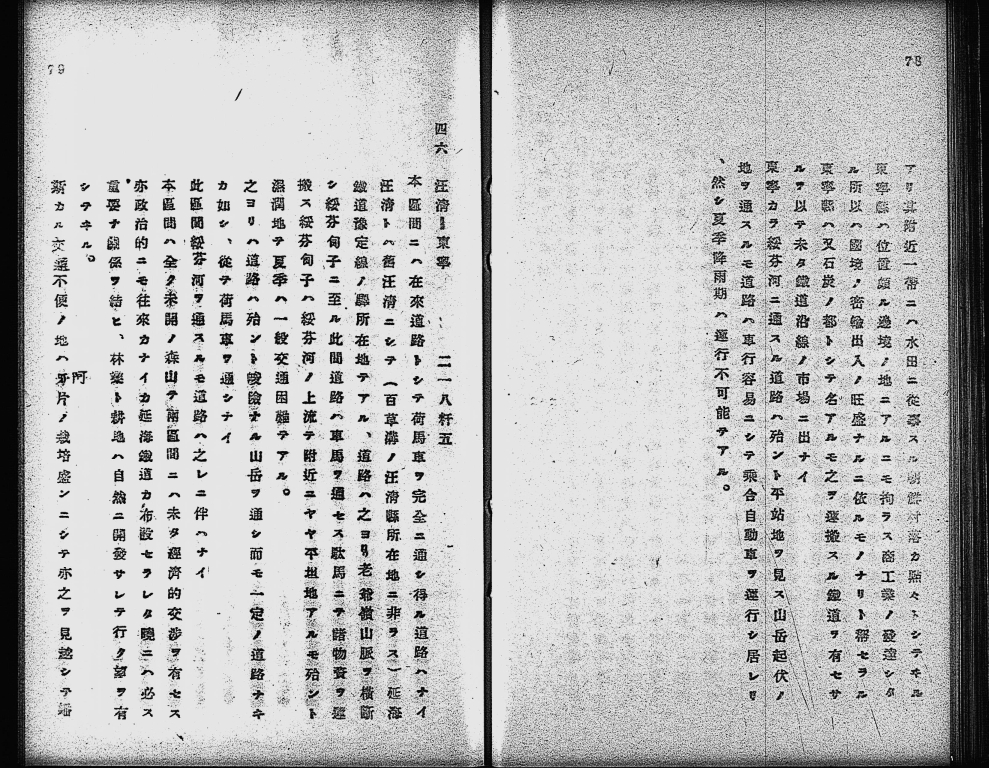 78
アリ其附近一帶ニハ水田ニ從事スル朝鮮村落カ點々トシテキル
東寧縣ハ位置頗ル邊境ノ地ニアルニモ拘ラス商工業ノ發達シタ
ル所以ハ國境ノ密輸出入ノ旺盛ナルニ依ルモノナリト稱セラル
東寧縣ハ又石炭ノ都トシテ名アルモ之ヲ運搬スル鐵道ヲ有セサ
ルヲ以テ未タ鐵道沿線ノ市場ニ出ナイ
東寧カラ綏芬河ニ通スル道路ハ殆ント平站地ヲ見ス山岳起伏ノ
地ヲ通スルモ道路ハ車行容易ニシテ乘合自動車ヲ運行シ居レリ
、然シ夏季降雨期ハ運行不可能テアル。
79
四六 汪清―東寧 二一八粁五
本區間ニハ在來道路トシテ荷馬車ヲ完全ニ通シ得ル道路ハナイ
汪清トハ舊汪清ニシテ(百草溝ノ汪清縣所在地ニ非ラス)延海
鐵道豫定線ノ驛所在地テアル、道路ハ之ヨリ老爺嶺山脈ヲ橫斷
シ綏芬甸子ニ至ル此間道路ハ車馬ヲ通セス馱馬ニテ諸物資ヲ運
搬ス綏芬甸子ハ綏芬河ノ上流テ附近ニヤヤ平坦地アルモ殆ント
濕潤地テ夏季ハ一般交通困難テアル。
之ヨリハ道路ハ殆ント峻險ナル山岳ヲ通シ而モ一定ノ道路ナキ
カ如シ、從テ荷馬車ヲ通シナイ
此區間綏芬河ヲ通スルモ道路ハ之レニ伴ハナイ
本區間ハ全ク未開ノ森山テ兩區間ニハ未タ經濟的交涉ヲ有セス
亦政治的ニモ往來カナイカ延海鐵道カ布設セラレタ曉ニハ必ス
重要ナ關係ヲ結ヒ、林業ト耕地ハ自然ニ開發サレテ行ク望ヲ有
シテキル。
斯カル交通不便ノ地ハ阿片ノ栽培盛ンニシテ亦之ヲ見越シテ